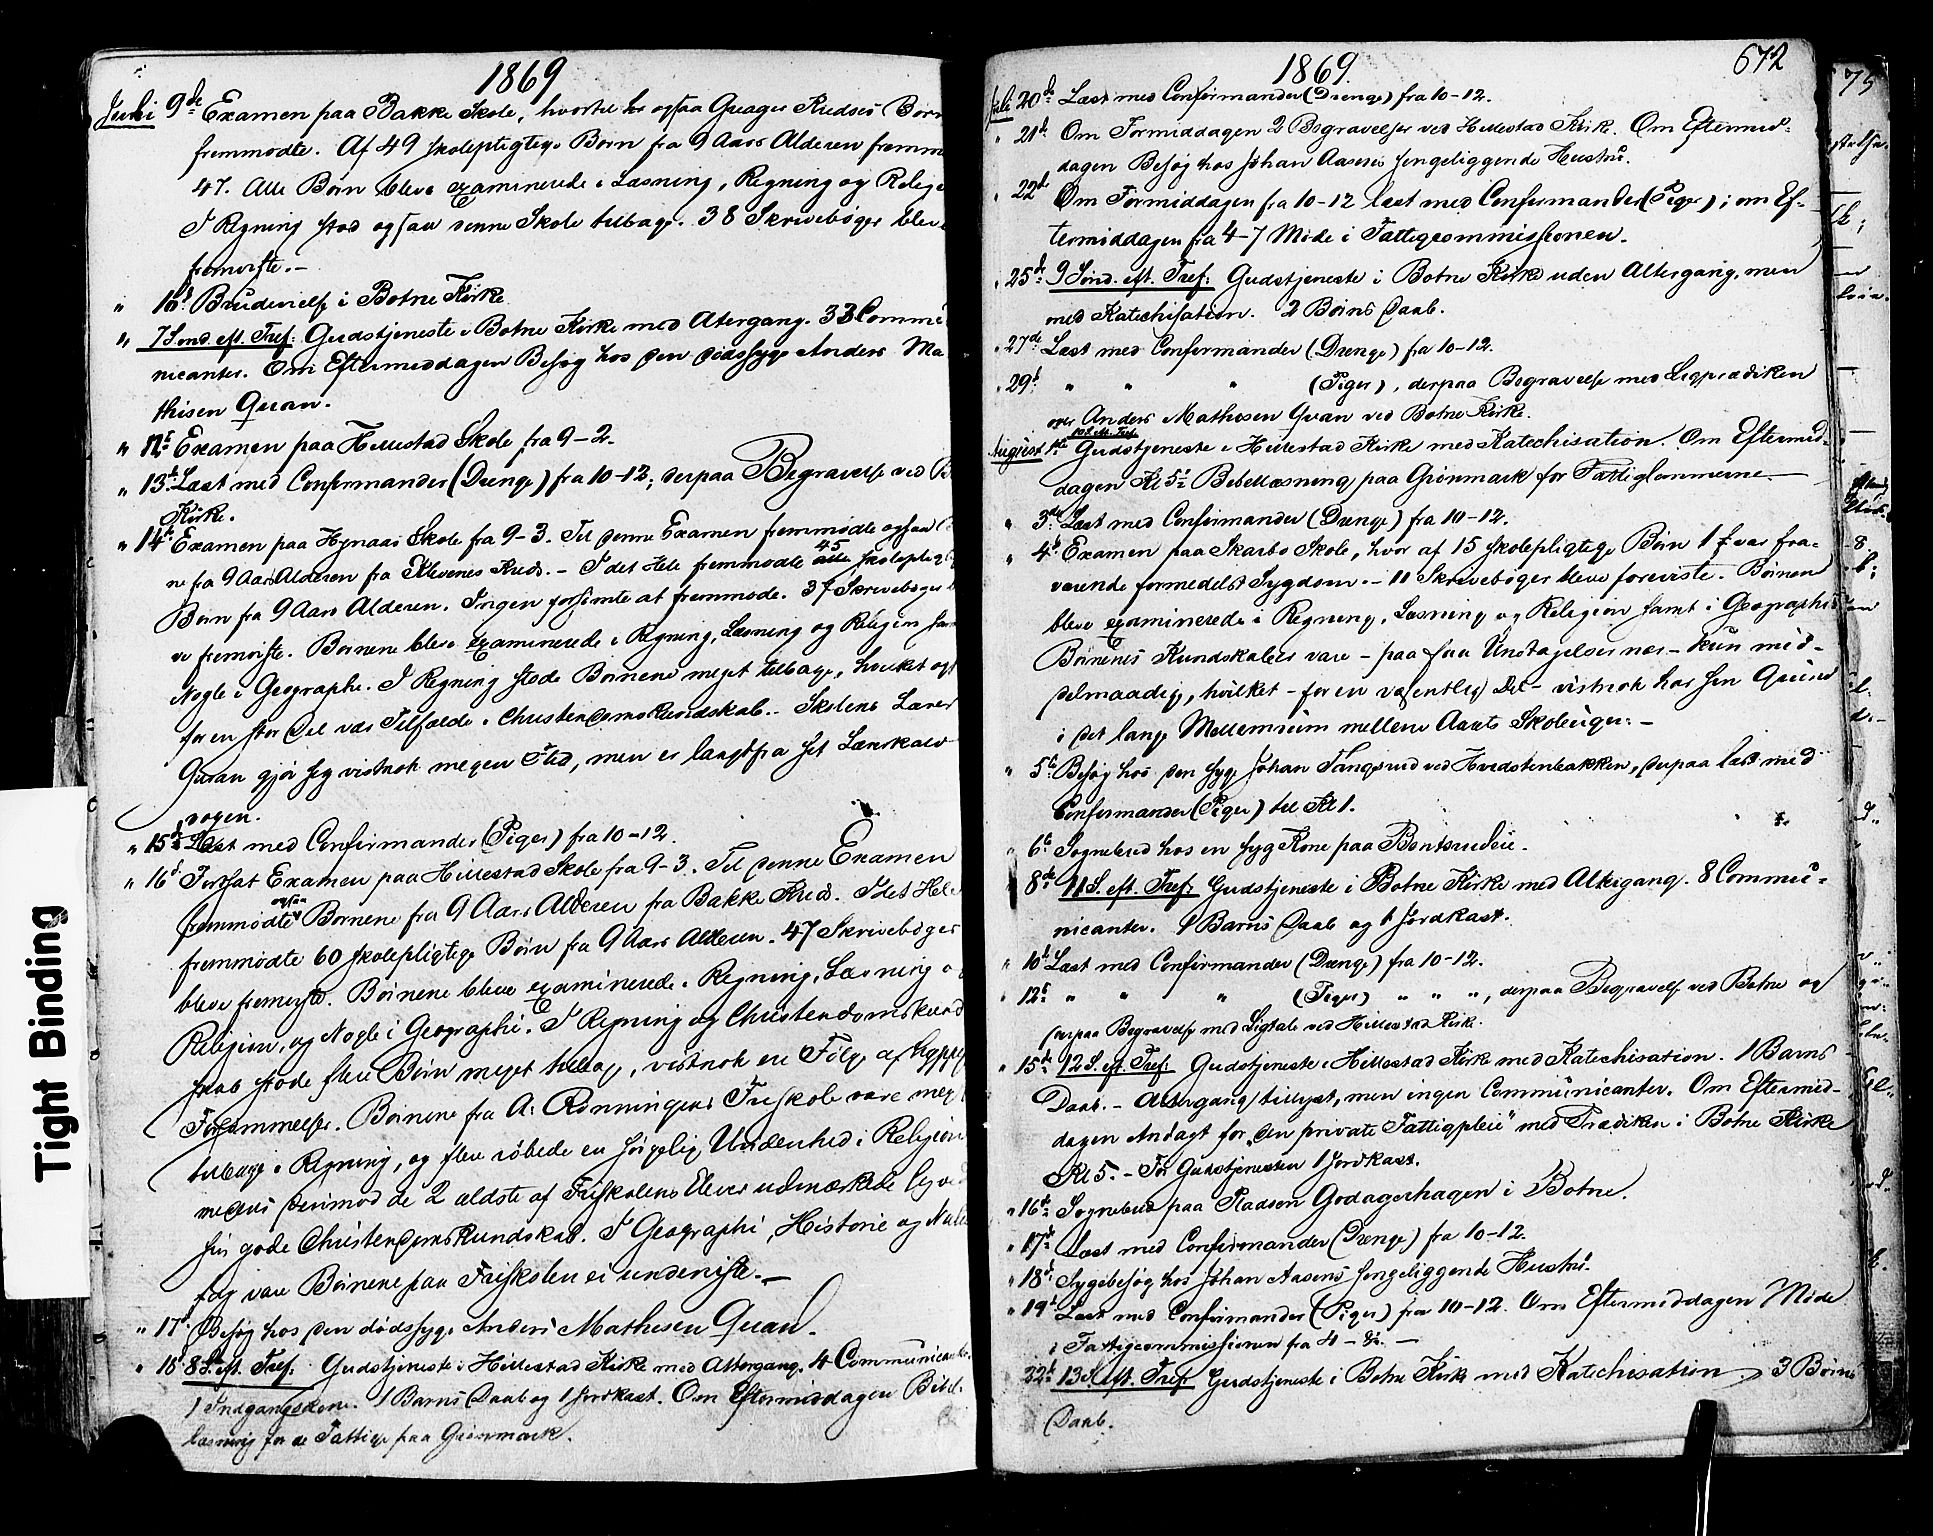 1869
Juli 9de Examen paa Bakke Skole, hvortil og saa Kredses Børn
fremmødte. Af 49 skolepligtige Børn fra 9 Aars Alderen fremm
47. Alle Børn bleve examinerede i Læsning, Regning og Relig
I Regning stod ogsaa denne Skole tilbage. 38 Skrivebøger blev
fremviste.-
" 10d Brudevielse i Botne Kirke
" 7 Sønd. eft. Tref: Gudstjeneste i Botne Kirke med Altergang. 33 Commu
nicanter. Om Eftermiddagen Besøg hos den dødssyge Anders Ma
thisen Qvan.
" 12t Examen paa Hillestad Skole fra 9-2.
" 13d Læst med Confirmander (Drenge) fra 10-12; derpaa Begravelse ved B
Kirke.
" 14d Examen paa Hynaas Skole fra 9-3. Til denne Examen fremmødte ogsaa
n fra 9 Aars Alderen fra Klevenes Kreds. - I det Hele fremmødte 45 skolepligt
Børn fra 9 Aars Alderen. Ingen forsømte at fremmøde. 37 Skrivebøger
ve fremviste. Børnene bleve examinerede i Regning, Læsning og Religion sam
Nogle i Geographi. I Regning stode Børnene meget tilbage, hvilket ogs
for en stor Del var Tilfælde i Christendomskundskab. Skolens Lærer
Qvan gjør sig vistnok megen Flid, men er langtfra sit Lærekald
voxen.
" 15d Læst med Confirmander (Piger) fra 10-12.
" 16d Fortsat Examen paa Hillestad Skole fra 9-3. Til denne Examen
fremmødte ogsaa Børnene fra 9 Aars Alderen fra Bakke Kreds. I det Hele
fremmødte 60 skolepligtige Børn fra 9 Aars Alderen. 47 Skrivebøger
bleve fremviste. Børnene bleve examinerede i Regning, Læsning o
Religion, og Nogle i Geographi. I Regning og Christendomskund
skab stode flere Børn meget tilbage, vistnok en Følge af hyppig
Forsømmelse. Børnene fra A. Rønningens Friskole vare meg
tilbage i Regning, og flere røbede en sørgelig Uvidenhed i Religion
medens derimod de 2 ældste af Friskolens Elever udmærkede sig ved
sin gode Christendomskundskab. I Geographi, Historie og
fag vare Børnene paa Friskolen ei underviste.-
" 17d Besøg hos den dødssyge Anders Mathesen Qvan.
" 18d 8 S. eft. Tref. Gudstjeneste i Hillestad Kirke med Altergang. 4 Communicante
1 Indgangskone. 1 Barns Daab og 1 Jordkast. Om Eftermiddagen Bibel-
læsning for de Fattige paa Grønmark.
1869.
672
Juli 20d Læst med Confirmander (Drenge) fra 10-12.
" 21d Om Formiddagen 2 Begravelser ved Hillestad Kirke. Om Eftermid-
dagen Besøg hos Johan Aasens sengeliggende Hustru.
" 22d Om Formiddagen fra 10-12 læst med Confirmander (Piger); om Ef-
termiddagen fra 4-7 Møde i Fattigcommissionen.
" 25d 9 Sønd. eft. Tref: Gudstjeneste i Botne Kirke uden Altergang, men
med Katechisation. 2 Børns Daab.
" 27de Læst med Confirmander (Drenge) fra 10-12.
" 29d " " " (Piger), derpaa Begravelse med Ligprædiken
over Anders Mathesen Qvan ved Botne Kirke.
August 1ste 10 S. eft. Tref. Gudstjeneste i Hillestad Kirke med Katechisation. Om Eftermid-
dagen Kl 5 Bibellæsning paa Grønmark for Fattiglemmerne.
" 3de Læst med Confirmander (Drenge) fra 10-12.
" 4d Examen paa Skarbo Skole, hvor af 15 skolepligtige Børn 1 var fra-
værende formedelst Sygdom. - 11 Skrivebøger bleve foreviste. Børnene
bleve examinerede i Regning, Læsning og Religion samt i Geographi
Børnenes Kundskaber vare - paa faa Undtagelser nær - kun mid-
delmaadig, hvilket - for en væsentlig Del - vistnok har sin Grund
i det lange Mellemrum mellem Aarets Skoleuger. -
" 5t Besøg hos den syge Johan Tangsrud ved Hvedstenbakken, derpaa læst med
Confirmander (Piger) til Kl 1.
" 6t Sognebud hos en syg Kone paa Bentsrudeie.
8de 11 S. eft. Tref: Gudstjeneste i Botne Kirke med Altergang. 8 Commu-
nicanter. 1 Barns Daab og 1 Jordkast.
" 10t Læst med Confirmander (Drenge) fra 10-12.
" 12t " " " (Piger) " " ", derpaa Begravelse ved Botne og
derpaa Begravelse med Ligtale ved Hillestad Kirke.
" 15d 12 S. eft. Tref: Gudstjeneste i Hillestad Kirke med Katechisation. 1 Barns
Daab. - Altergang tillyst, men ingen Communicanter. Om Eftermid-
dagen Andagt for "den private Fattigpleie" med Prædiken i Botne Kirke
Kl 5. - Før Gudstjenesten 1 Jordkast.
" 16d Sognebud paa Pladsen Godagerhagen i Botne.
" 17d Læst med Confirmander (Drenge) fra 10-12.
" 18d Sygebesøg hos Johan Aasens sengeliggende Hustru.
" 19d Læst med Confirmander (Piger) fra 10-12. Om Eftermiddagen Møde
i Fattigcommissionen fra 4 - 8½. -
22d 13 S. eft. Tref: Gudstjeneste i Botne Kirke med Katechisation. 3 Børns
Daab.
75
Tight Binding